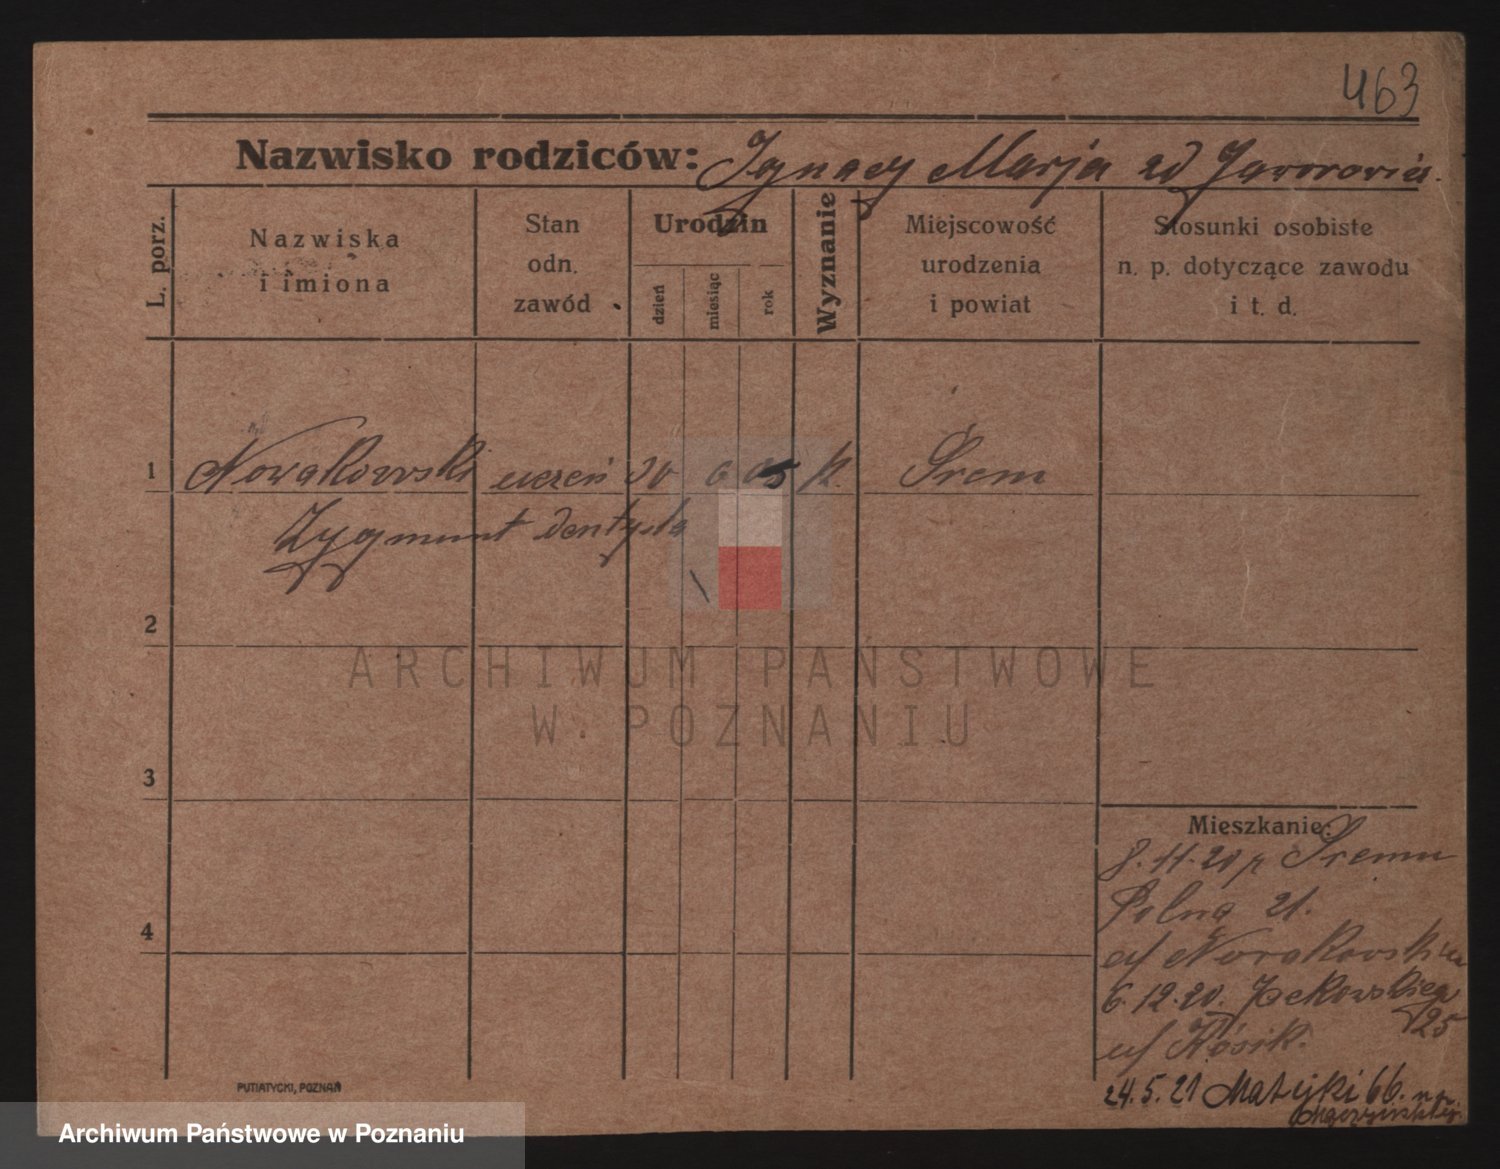 463
Nazwisko rodziców: Ignacy Marja zd Jaworowicz.
L. porz.
Nazwiska
i imiona
Stan
odn.
zawód
Urodzin
dzień
miesiąc
rok
Wyznanie
Miejscowość
urodzenia
i powiat
Stosunki osobiste
n. p. dotyczące zawodu
i t. d.
1 Nowakowski uczeń 30 6 05 k. Śrem
Zygmunt dentysta
2
3
4
ARCHIWUM PAŃSTWOWE
W POZNANIU
Mieszkanie:
8.11.20 z Śremu
Polna 21.
u/ Nowakowskim
6.12.20.
25
u/ Kósik.
24.5.21 Matejki 66.
PUTIATYCKI, POZNAŃ
Archiwum Państwowe w Poznaniu